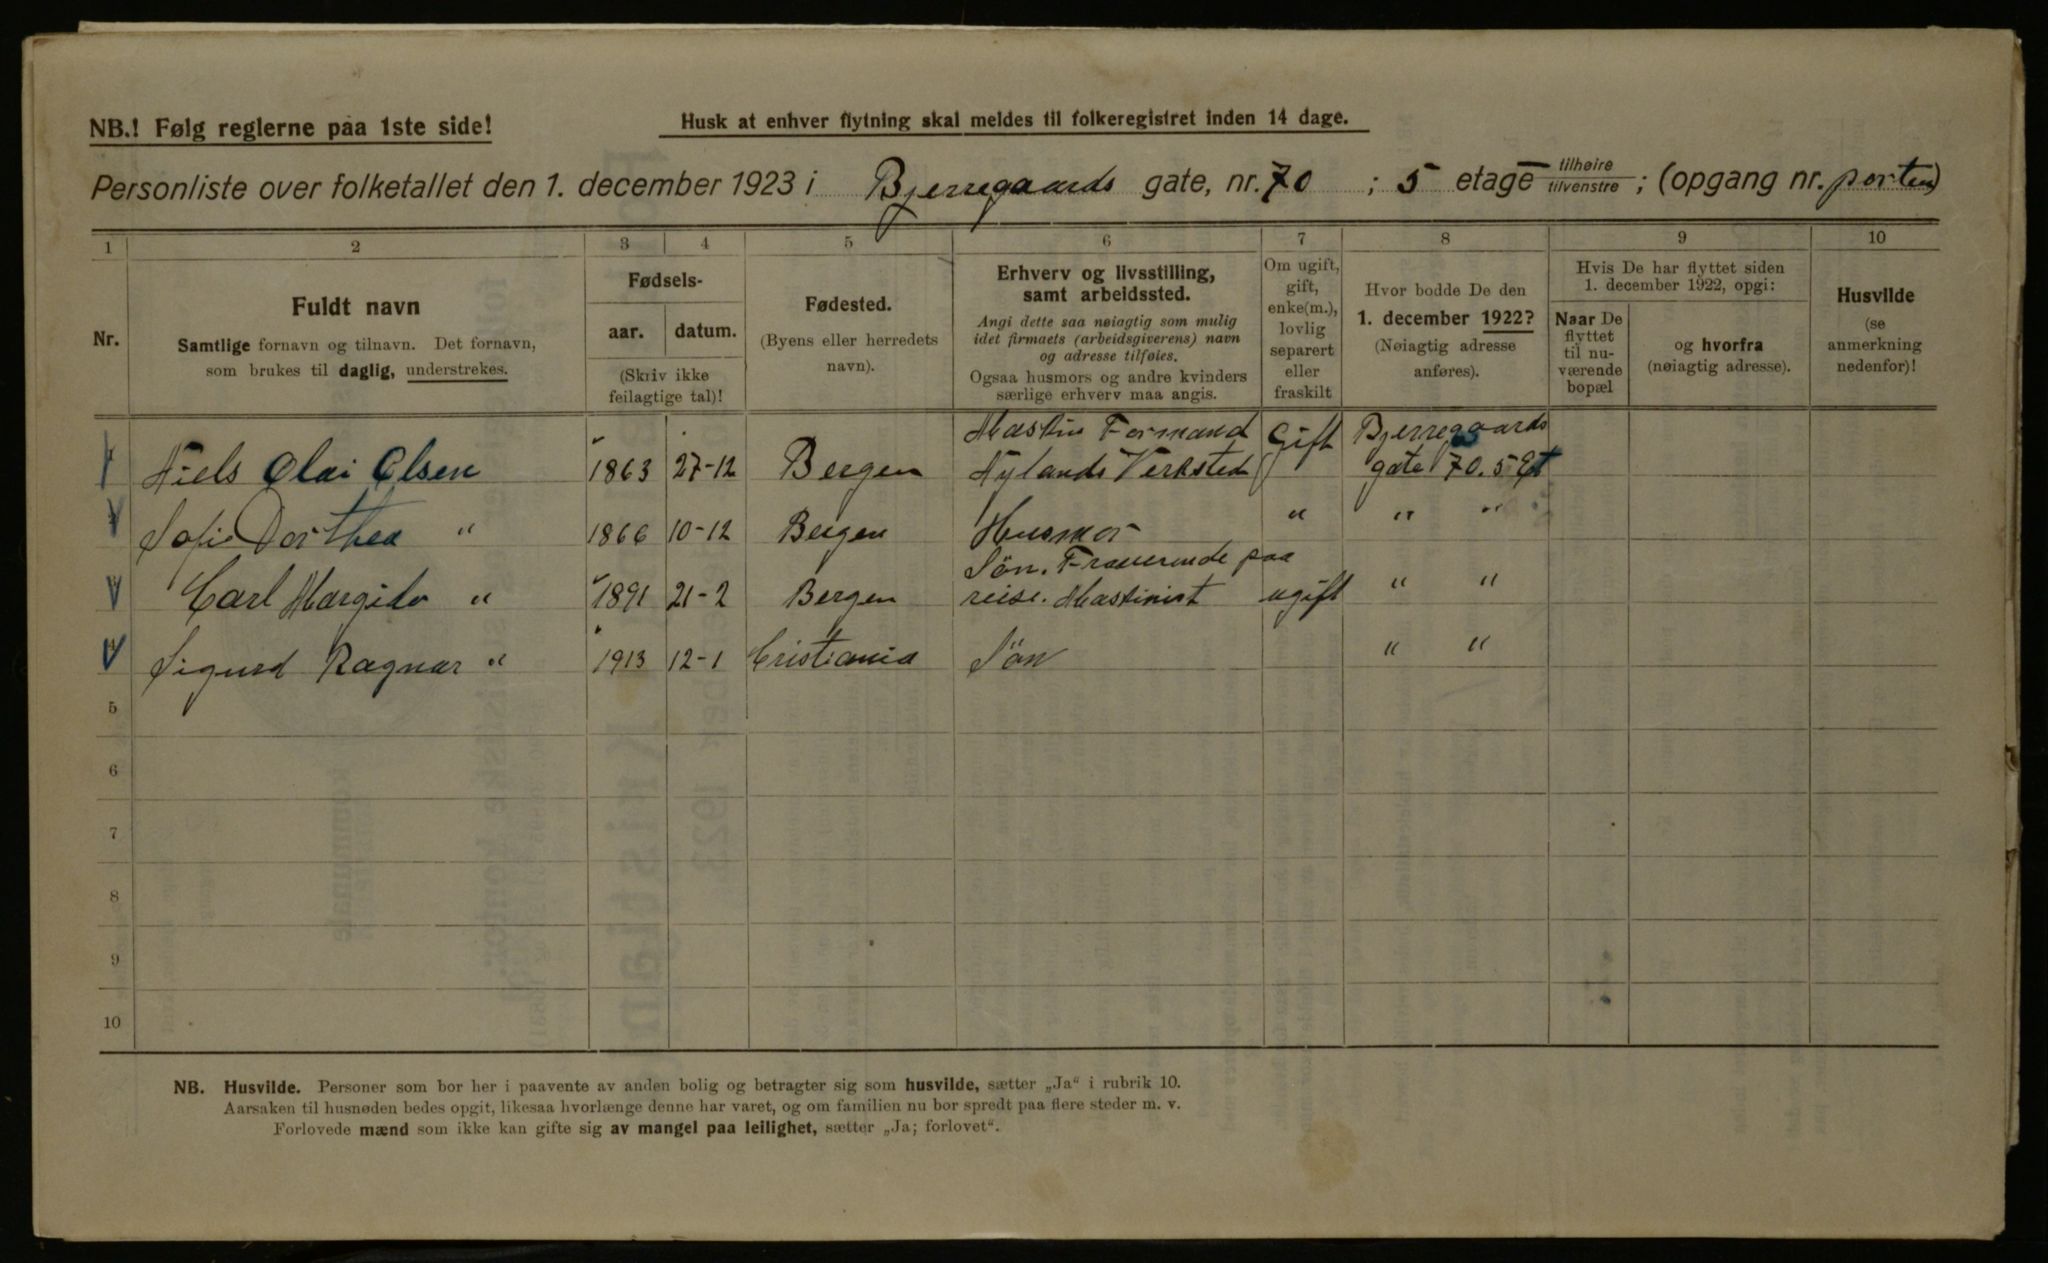 NB.! Følg reglerne paa 1ste side!
Husk at enhver flytning skal meldes til folkeregistret inden 14 dage.
Personliste over folketallet den 1. december 1923 i Bjerregaards gate, nr. 70 ; 5 etage tilhøire tilvenstre ; (opgang nr. porten)
1 2 3 4 5 6 7 8 9 10
Nr.
Fuldt navn
Samtlige fornavn og tilnavn. Det fornavn,
som brukes til daglig, understrekes.
Fødsels-
aar. datum.
(Skriv ikke
feilagtige tal)!
Fødested.
(Byens eller herredets
navn).
Erhverv og livsstilling,
samt arbeidssted.
Angi dette saa nøiagtig som mulig
idet firmaets (arbeidsgiverens) navn
og adresse tilføies.
Ogsaa husmors og andre kvinders
særlige erhverv maa angis.
Om ugift,
gift,
enke(m.),
lovlig
separert
eller
fraskilt
Hvor bodde De den
1. december 1922?
(Nøiagtig adresse
anføres).
Hvis De har flyttet siden
1. december 1922, opgi:
Naar De
flyttet
til nu-
værende
bopæl
og hvorfra
(nøiagtig adresse).
Husvilde
(se
anmerkning
nedenfor)!
Maskin Formand Gift Bjerregaards
Niels Olai Olsen 1863 27-12 Bergen Nylands Verksted gate 70. 5 Et
Sofie Dorthea " 1866 10-12 Bergen Husmor " " "
Søn. Fraverende paa
Carl Margido " 1891 21-2 Bergen reise. Maskinist ugift " "
Sigurd Ragnar " 1913 12-1 Cristiania Sön " "
5
6
7
8
9
10
NB. Husvilde. Personer som bor her i paavente av anden bolig og betragter sig som husvilde, sætter „Ja“ i rubrik 10.
Aarsaken til husnøden bedes opgit, likesaa hvorlænge denne har varet, og om familien nu bor spredt paa flere steder m. v.
Forlovede mænd som ikke kan gifte sig av mangel paa leilighet, sætter „Ja; forlovet“.